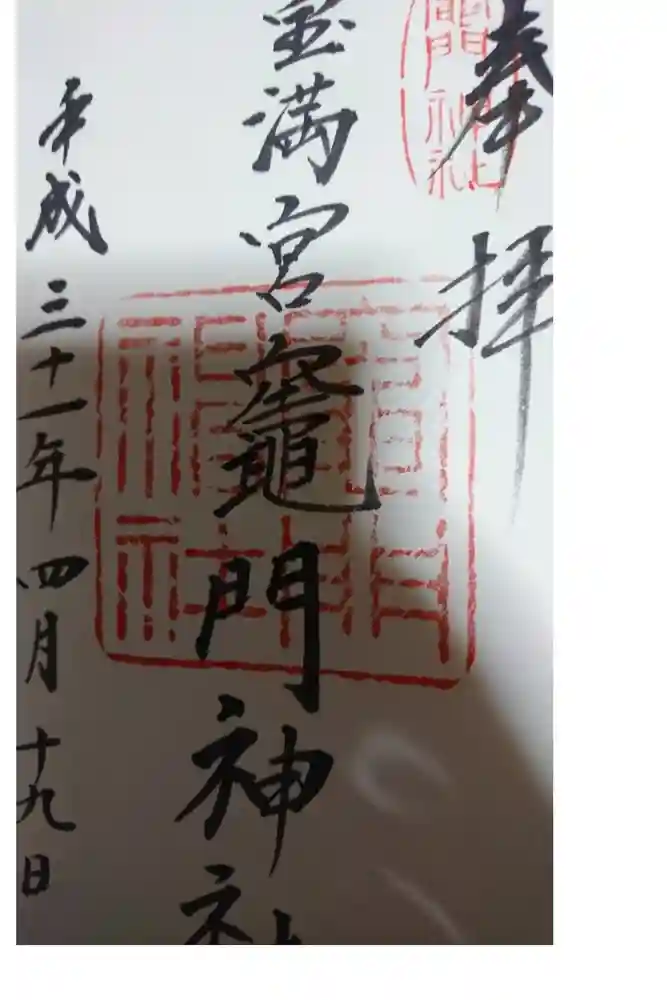 奉拝
宝満宮竈門神社
平成三十一年四月十九日